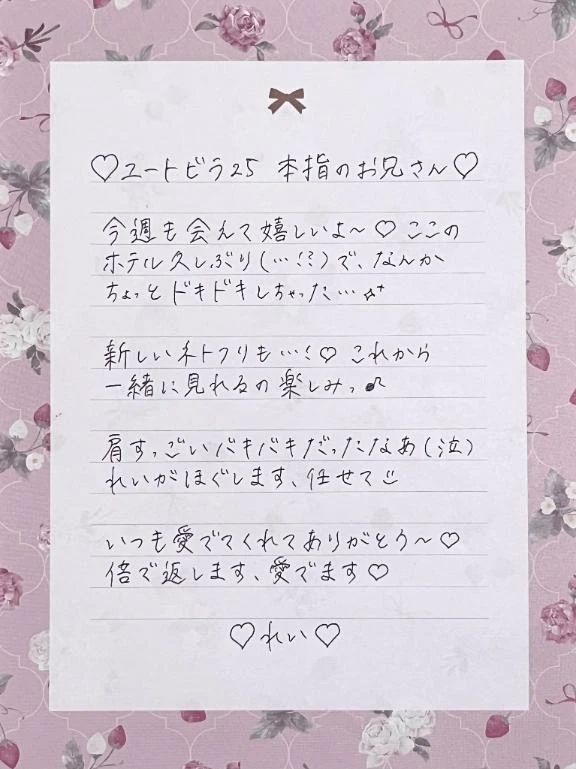 ♡ユートピラ25 本指のお兄さん♡
今週も会えて嬉しいよ〜♡ここの
ホテル久しぶり(…!?)で、なんか
ちょっとドキドキしちゃった…
新しいネトフリも…!♡これから
一緒に見れるの楽しみっ♪
肩すっごいバキバキだったなあ(泣)
れいがほぐします、任せて☺
いつも愛でてくれてありがとう〜♡
倍で返します、愛でます♡
♡れい♡